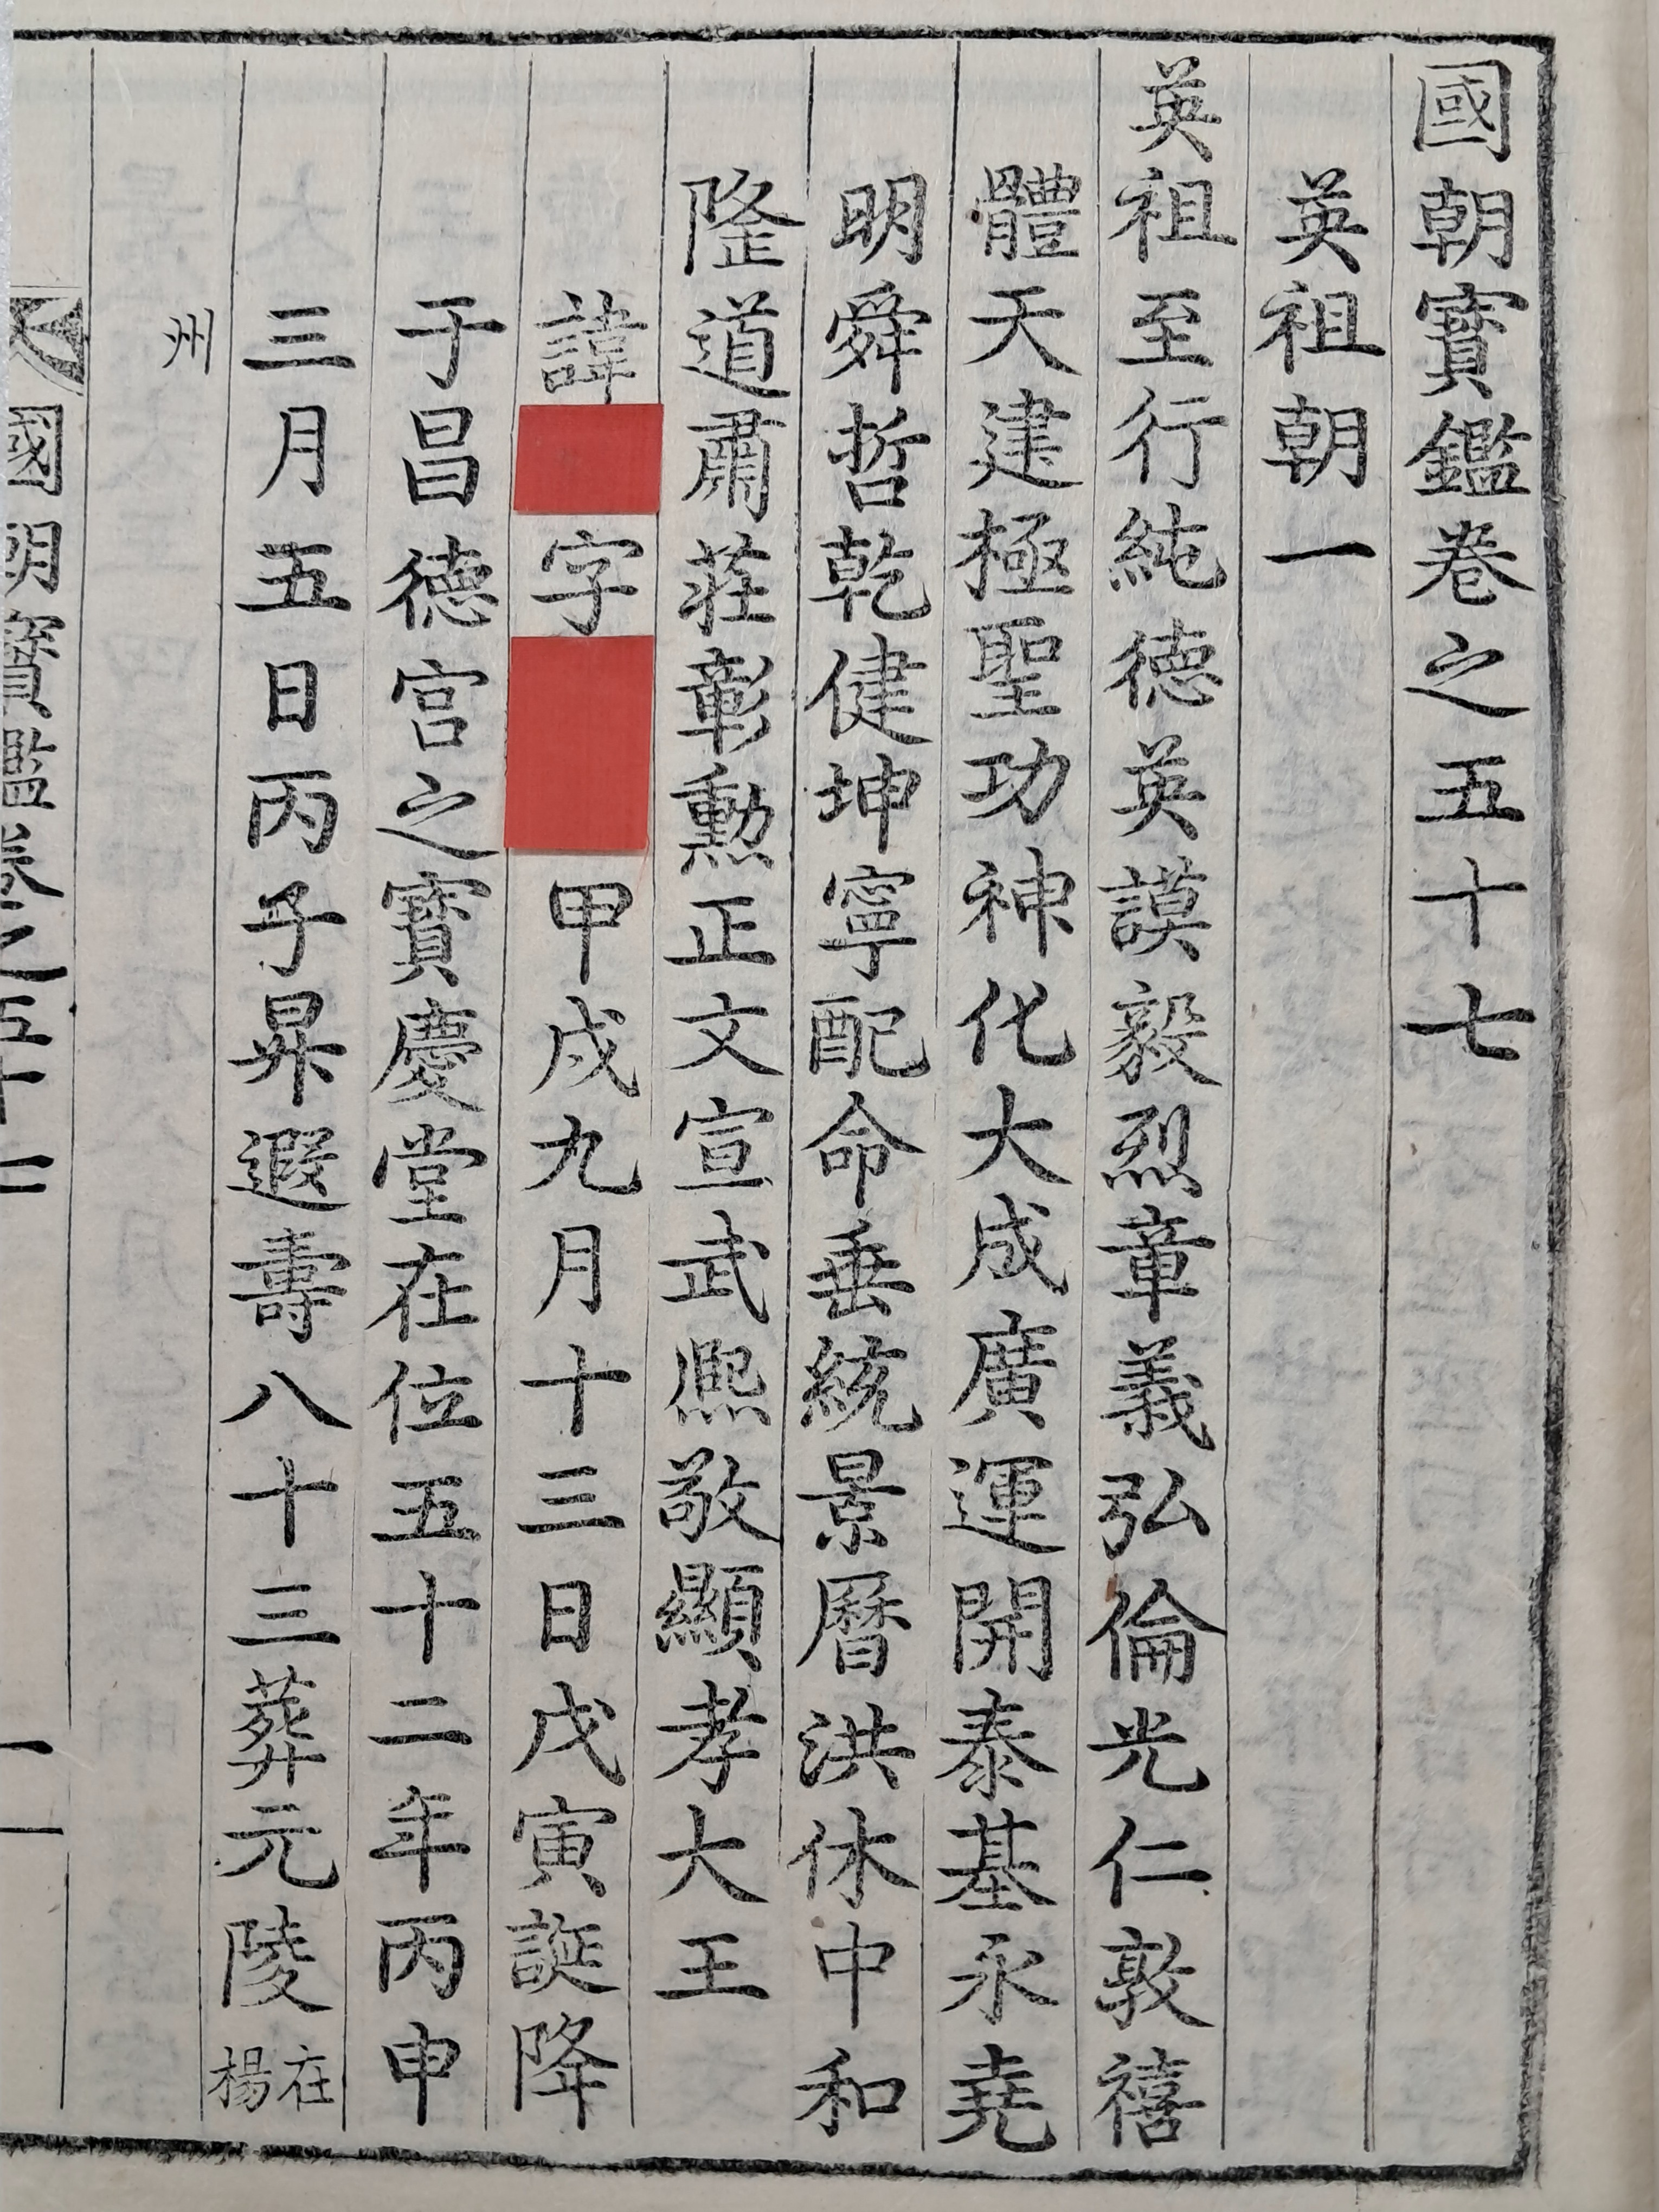 國朝寶鑑卷之五十七
英祖朝一
英祖至行純德英謨毅烈章義弘倫光仁敦禧
體天建極聖功神化大成廣運開泰基永堯
明舜哲乾健坤寧配命垂統景曆洪休中和
隆道肅莊彰勳正文宣武熙敬顯孝大王
諱字甲戌九月十三日戊寅誕降
于昌德宮之寶慶堂在位五十二年丙申
三月五日丙子昇遐壽八十三葬元陵在楊
州
國朝寶鑑卷之五十七 一